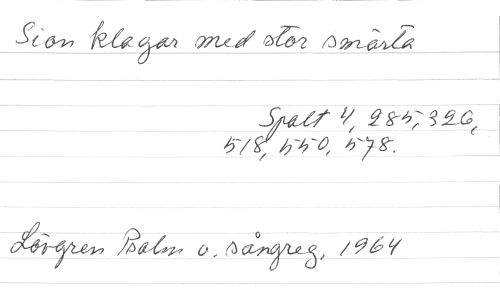 Sion klagar med stor smärta
Spalt 4, 285, 326,
518, 550, 578.
Lövgren Psalm o. sångreg, 1964